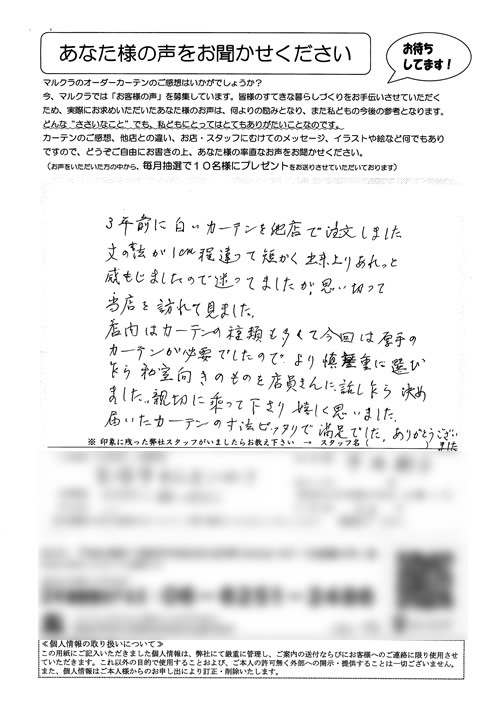 あなた様の声をお聞かせください
お待ち
してます!
マルクラのオーダーカーテンのご感想はいかがでしょうか?
今、マルクラでは「お客様の声」を募集しています。皆様のすてきな暮らしづくりをお手伝いさせていただく
ため、実際にお求めいただいたあなた様のお声は、何よりの励みとなり、また私どもの今後の参考となります。
どんな“ささいなこと”でも、私どもにとってはとてもありがたいことなのです。
カーテンのご感想、他店との違い、お店・スタッフにむけてのメッセージ、イラストや絵など何でもあり
ですので、どうぞご自由にお書きの上、あなた様の率直なお声をお聞かせください。
(お声をいただいた方の中から、毎月抽選で10名様にプレゼントをお送りさせていただいております)
3年前に白いカーテンを他店で注文しました
丈の寸法が1cm程違って短かく出来上りあれっと
感もじましたので迷ってましたが思い切って
当店を訪れて見ました。
店内はカーテンの種類も多くて今回は厚手の
カーテンが必要でしたので より慎重に選び
ながら 和室向きのものを店員さんに話しながら 決め
ました。親切に乗って下さり 嬉しく思いました。
届いたカーテンの寸法ピッタリで満足でした。ありがとうござい
ました
※印象に残った弊社スタッフがいましたらお教え下さい → スタッフ名( )
06-6251-2486
≪個人情報の取り扱いについて≫
この用紙にご記入いただきました個人情報は、弊社にて厳重に管理し、ご案内の送付ならびにお客様へのご連絡に限り使用させ
ていただきます。これ以外の目的で使用することおよび、ご本人の許可無く外部への開示・提供することは一切ございません。
また、個人情報はご本人様からのお申し出により訂正・削除いたします。